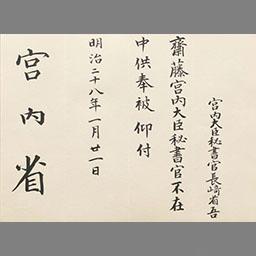 宮内大臣秘書官長﨑省吾
齋藤宮内大臣秘書官不在
中供奉被 仰付
明治二十八年一月廿一日
宮内省